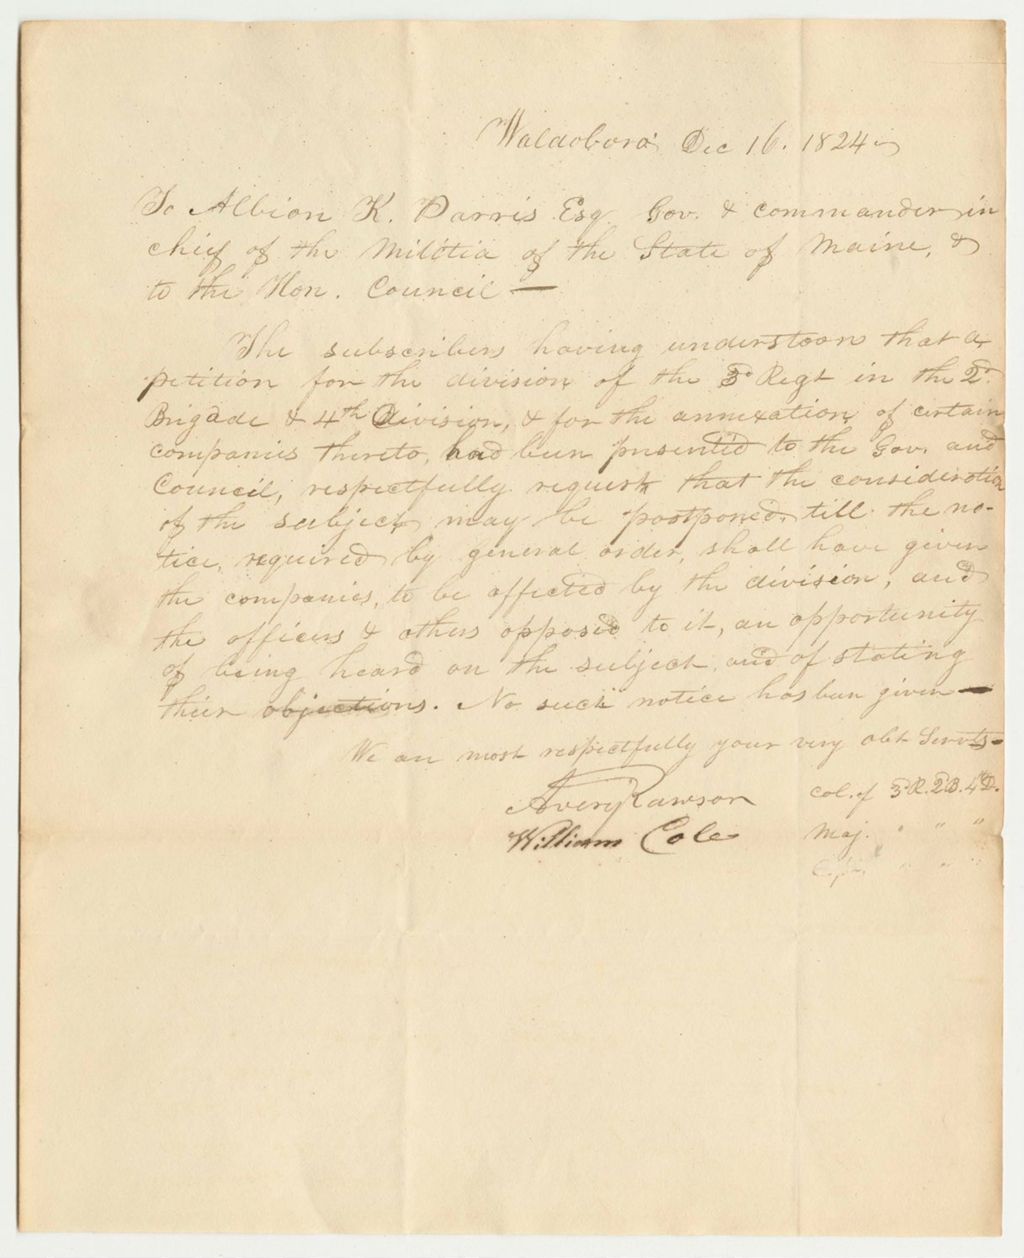 Waldoboro' Dec 16. 1824
To Albion K. Parris Esq Gov. & commander in
chief of the Militia of the State of Maine, &
to the Hon. Council —
The subscribers having understood that a
petition for the division of the 3d Regt in the 2d
Brigade & 4th Division, & for the annexation of certain
companies thereto, had been presented to the Gov. and
Council, respectfully request that the consideration
of the subject may be postponed till the no-
tice, required by general order, shall have given
the companies, to be affected by the division, and
the officers & others opposed to it, an opportunity
of being heard on the subject, and of stating
their objections. No such notice has been given —
We are most respectfully your very obt Servts —
Avery Rawson Col. of 3d R. 2d B. 4th D.
William Cole Maj. " " "
" " "